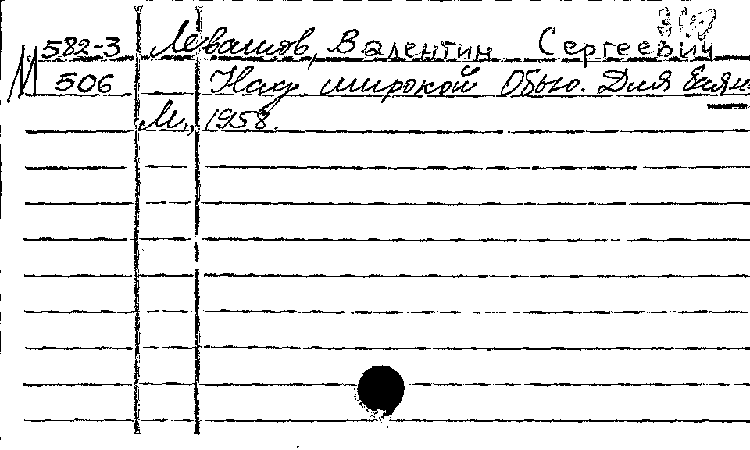 М 582-3 Левашов, Валентин Сергеевич
506 Над широкой Обью. Для баян
М., 1958.